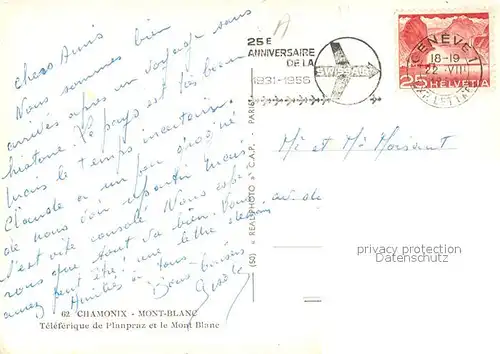 Chers Amis
Nous sommes bien
arrivés après un voyage sans
histoire. Le pays est très beau
mais le temps incertain.
Claude a un peu
de nous voir repartir mais
s'est vite consolé. Nous
vous que tout va bien. Vous
avez peut être une lettre
Amitiés à tous.
Bons baisers
62 CHAMONIX - MONT-BLANC
Téléferique de Planpraz et le Mont Blanc
(50) « REAL-PHOTO » C.A.P. - PARIS
25E
ANNIVERSAIRE
DE LA
SWISSAIR
1931-1956
GENÈVE 1
18-19
22. VIII
25 HELVETIA
Mr et Me Moisant
av. de
www.philatelie.com
copyright